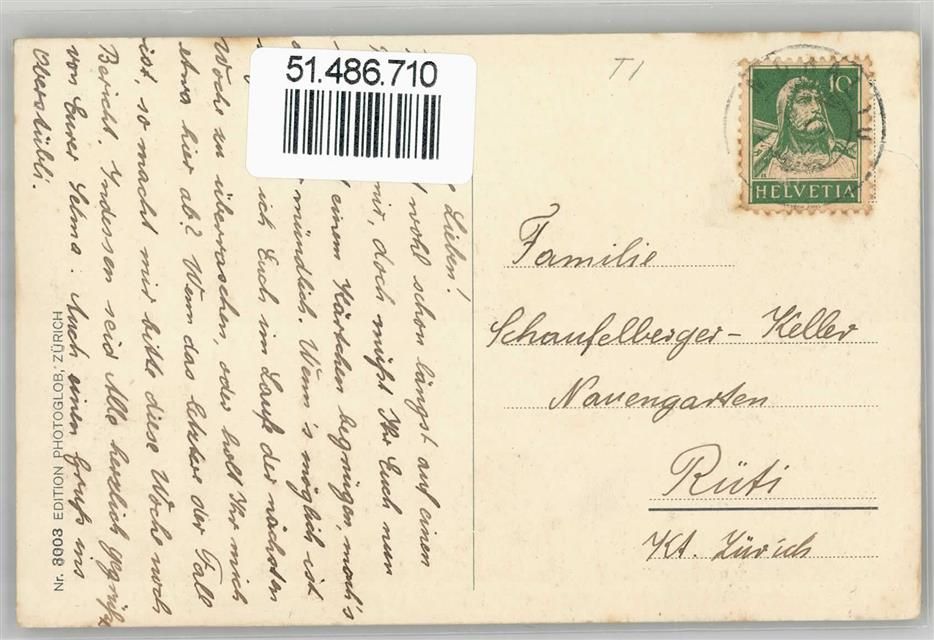 51.486.710
T1
10
HELVETIA
Lieben!
wohl schon längst auf einen
mir, doch müsst Ihr Euch nun
einem Kärtchen begnügen, mach's
mündlich. Wenn's möglich ist
ich Euch im Laufe der nächsten
Woche zu überraschen, oder holt Ihr mich
etwa hier ab? Wenn das letztere der Fall
ist, so macht mir bitte diese Woche noch
Bericht. Indessen seid Alle herzlich gegrüsst
von Eurer Selma. Auch einen Gruss ins
Oberstübli.
Familie
Schaufelberger-Keller
Nauengarten
Rüti
Kt. Zürich
Nr. 8003 EDITION PHOTOGLOB, ZÜRICH